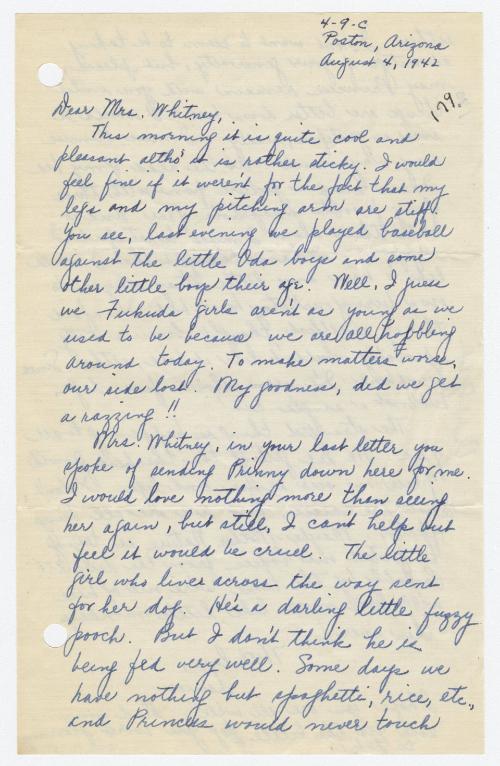 4-9-C
Poston, Arizona
August 4, 1942
179.
Dear Mrs. Whitney,
This morning it is quite cool and
pleasant altho' it is rather sticky. I would
feel fine if it weren't for the fact that my
legs and my pitching arm are stiff.
You see, last evening we played baseball
against the little Oda boys and some
other little boys their age. Well, I guess
we Fukuda girls aren't as young as we
used to be because we are all hobbling
around today. To make matters worse,
our side lost. My goodness, did we get
a razzing!!
Mrs. Whitney, in your last letter you
spoke of sending Prinny down here for me.
I would love nothing more than seeing
her again, but still, I can't help but
feel it would be cruel. The little
girl who lives across the way sent
for her dog. He's a darling little fuzzy
pooch. But I don't think he is
being fed very well. Some days we
have nothing but spaghetti, rice, etc.,
and Princess would never touch